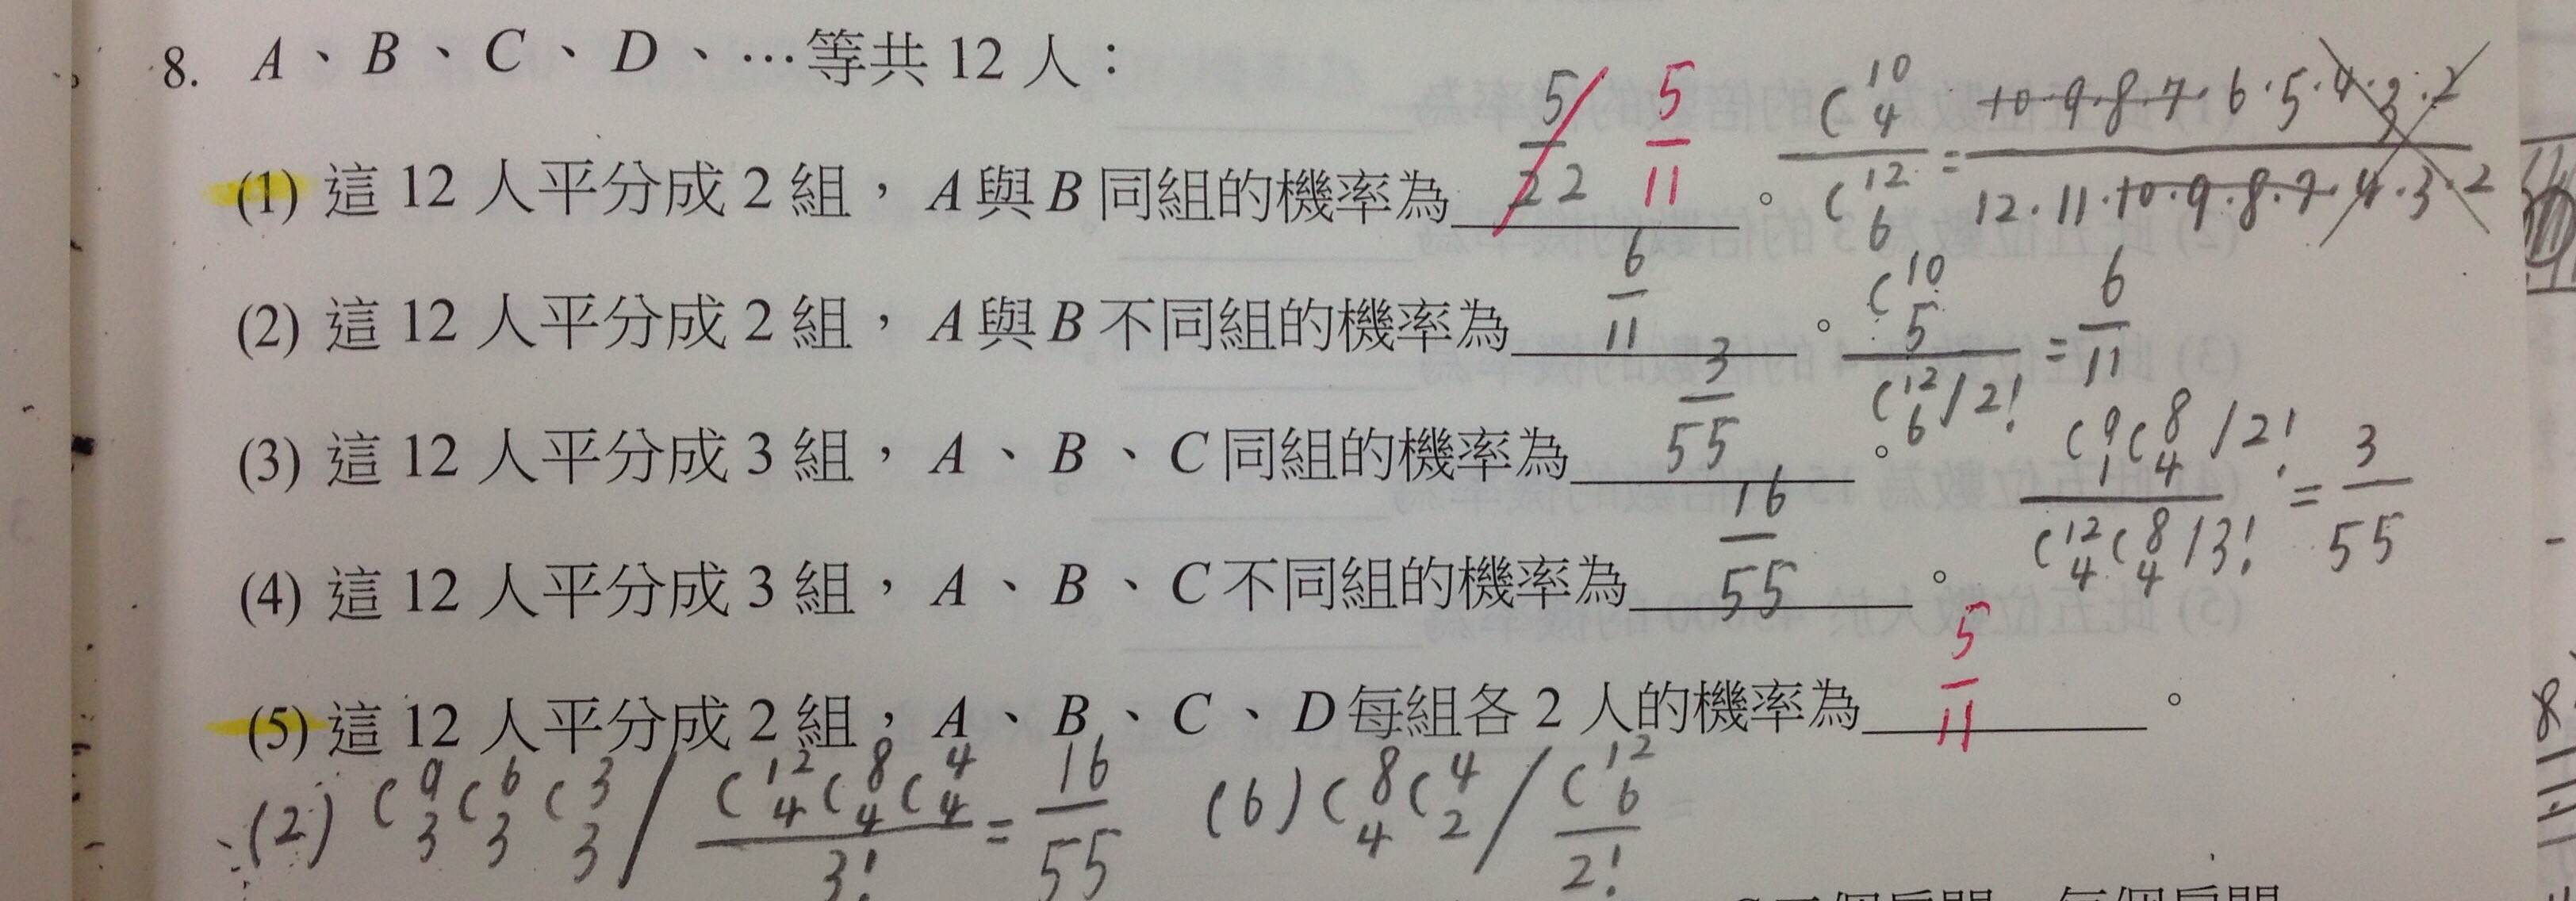 8. A、B、C、D、…等共 12 人：
(1) 這 12 人平分成 2 組，A與B同組的機率為 5/22 5/11 。 C^10_4 / C^12_6 = 10·9·8·7·6·5·4·3·2 / 12·11·10·9·8·7·4·3·2
(2) 這 12 人平分成 2 組，A與B不同組的機率為 6/11 。 C^10_5 / C^12_6/2! = 6/11
(3) 這 12 人平分成 3 組，A、B、C同組的機率為 3/55 。 C^9_1 C^8_4 /2! / C^12_4 C^8_4 /3! = 3/55
(4) 這 12 人平分成 3 組，A、B、C不同組的機率為 16/55 。
(5) 這 12 人平分成 2 組，A、B、C、D每組各 2 人的機率為 5/11 。
(2) C^9_3 C^6_3 C^3_3 / C^12_4 C^8_4 C^4_4 / 3! = 16/55 (6) C^8_4 C^4_2 / C^12_6 / 2!